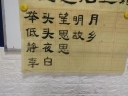 举头望明月
低头思故乡
静夜思
李白